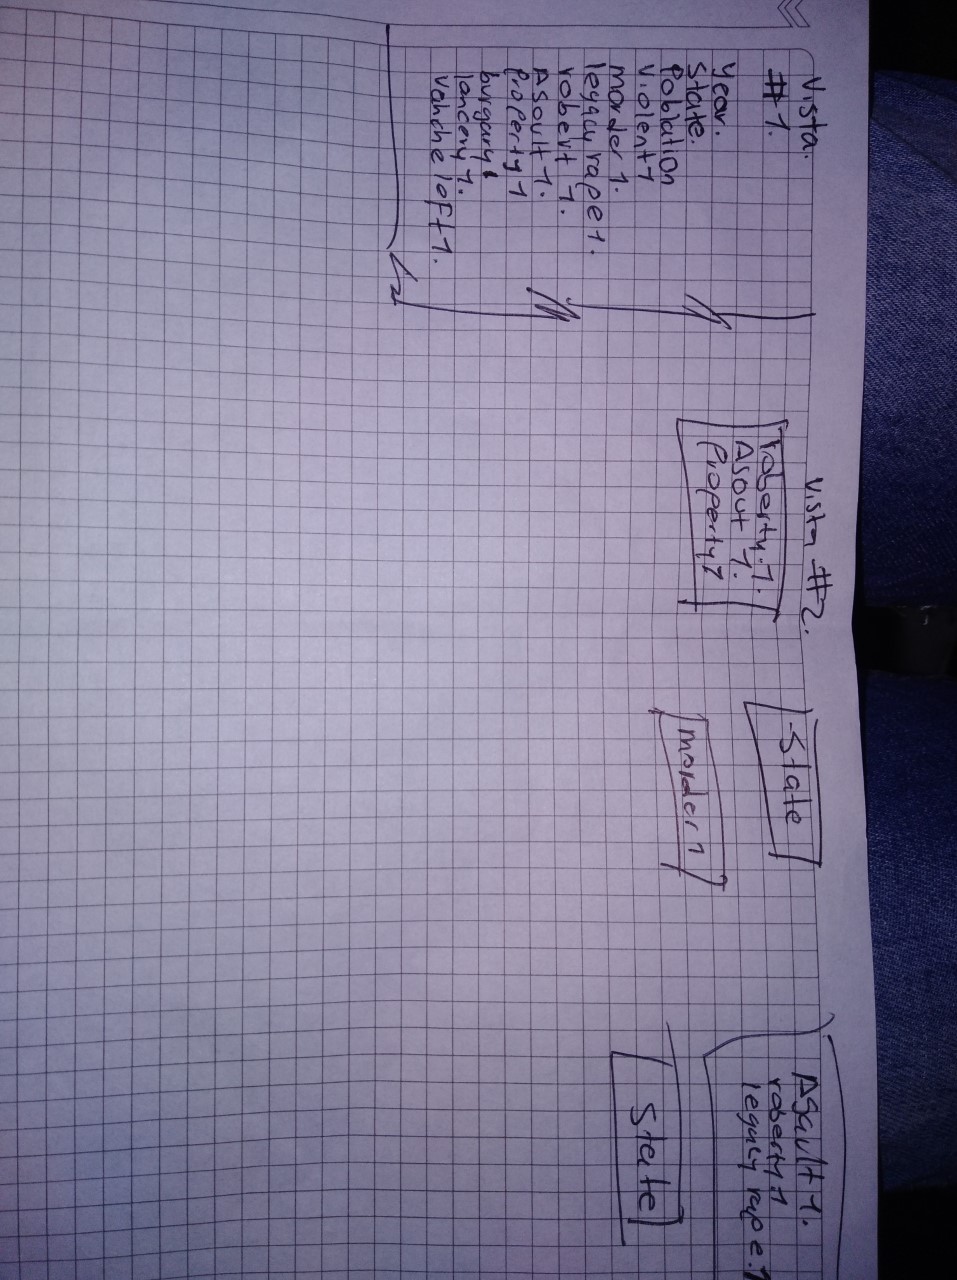 Vista.
#1.
Year.
State.
Poblation
Violent 1
Morder 1.
legacy, rape 1.
robert 1.
Asoult 1.
Property 1
burgary 1
lancery 1.
Vanche loft 1.
Vista #2.
roberty.1.
Asout 1.
Property1
State
Morder 1
Asault 1.
roberty 1
legacy rape.1
State